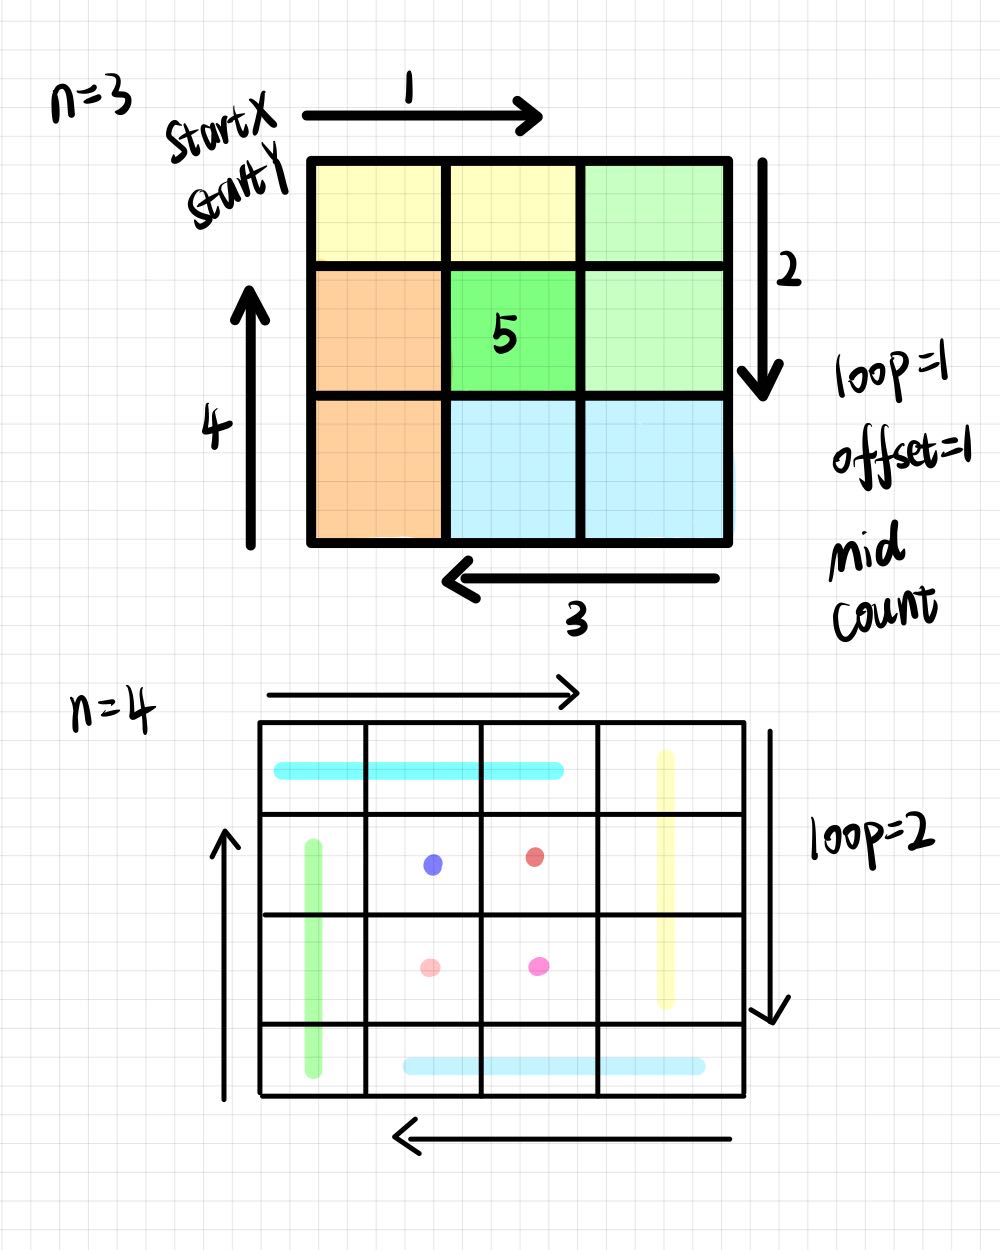 n=3
1
startX
startY
2
5
4
loop=1
offset=1
mid
count
3
n=4
loop=2